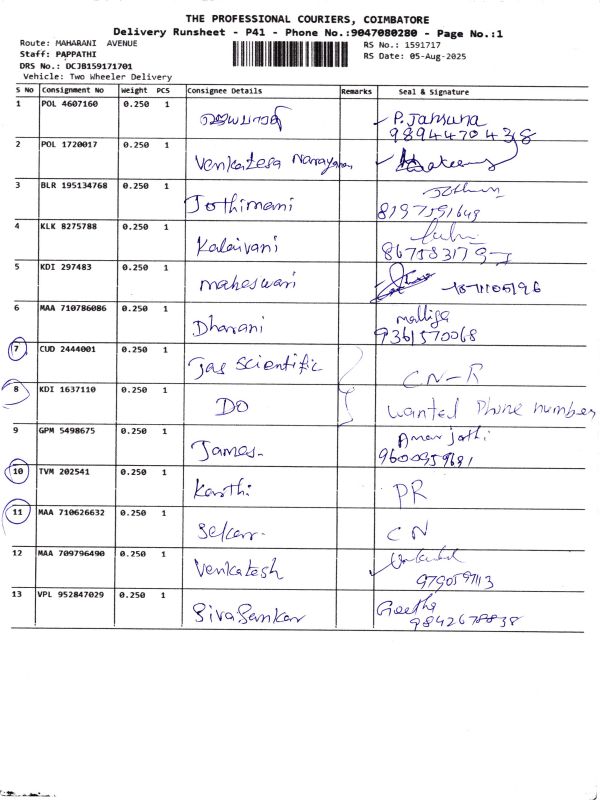 THE PROFESSIONAL COURIERS, COIMBATORE
Delivery Runsheet - P41 - Phone No.:9047080280 - Page No.:1
Route: MAHARANI AVENUE
Staff: PAPPATHI
DRS No.: DCJB159171701
Vehicle: Two Wheeler Delivery
RS No.: 1591717
RS Date: 05-Aug-2025
S No Consignment No Weight PCS Consignee Details Remarks Seal & Signature
1 POL 4607160 0.250 1 ஜெயபாரதி P. Jamuna
9894470438
2 POL 1720017 0.250 1 Venkatesa Narayanan
3 BLR 195134768 0.250 1 Jothimani
8197591649
4 KLK 8275788 0.250 1 Kalaivani
5 KDI 297483 0.250 1 maheswari
6 MAA 710786086 0.250 1 Dharani malliga
9361570068
7 CUD 2444001 0.250 1 Jas Scientific CN-R
8 KDI 1637110 0.250 1 DO wanted Phone number
9 GPM 5498675 0.250 1 James- Amar jothi
9600959691
10 TVM 202541 0.250 1 Karthi PR
11 MAA 710626632 0.250 1 Sekar- CN
12 MAA 709796490 0.250 1 Venkatesh
9790597113
13 VPL 952847029 0.250 1 Siva Sankar Geetha